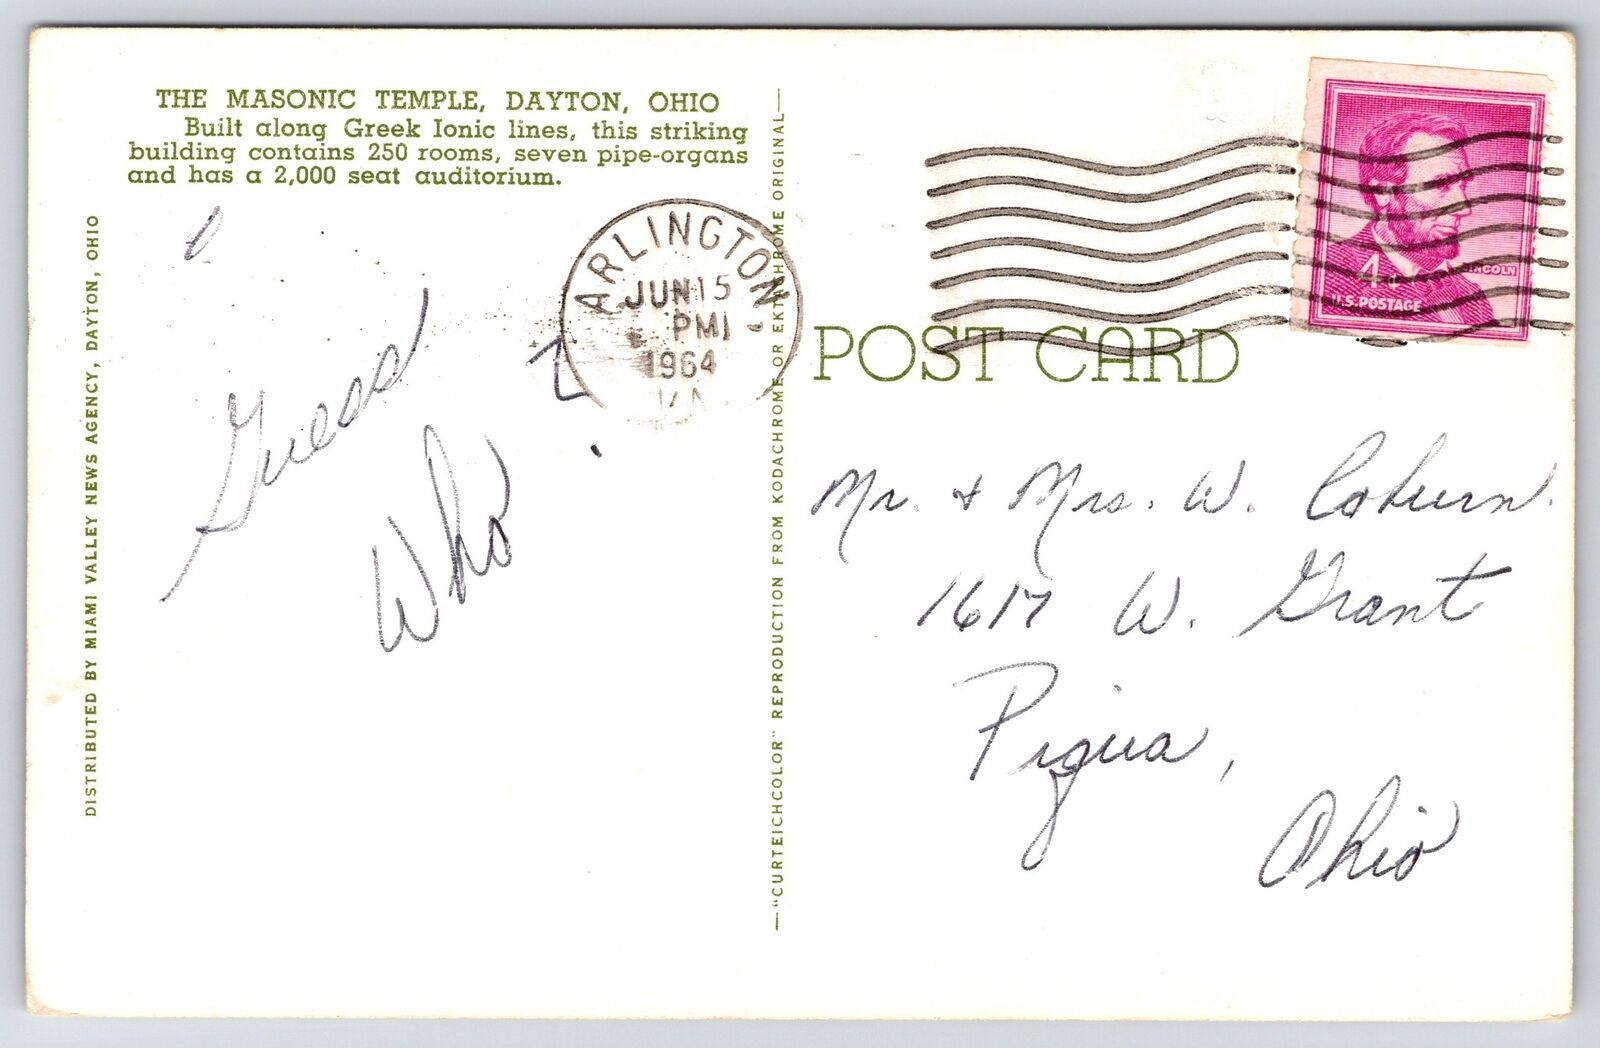 THE MASONIC TEMPLE, DAYTON, OHIO
Built along Greek Ionic lines, this striking
building contains 250 rooms, seven pipe-organs
and has a 2,000 seat auditorium.
DISTRIBUTED BY MIAMI VALLEY NEWS AGENCY, DAYTON, OHIO
Guess
Who ?
ARLINGTON
JUN 15
PM
1964
VA
—"CURTEICHCOLOR" REPRODUCTION FROM KODACHROME OR EKTACHROME ORIGINAL—
LINCOLN
4¢
U.S. POSTAGE
POST CARD
Mr. & Mrs. W. Coburn.
1617 W. Grant
Piqua,
Ohio